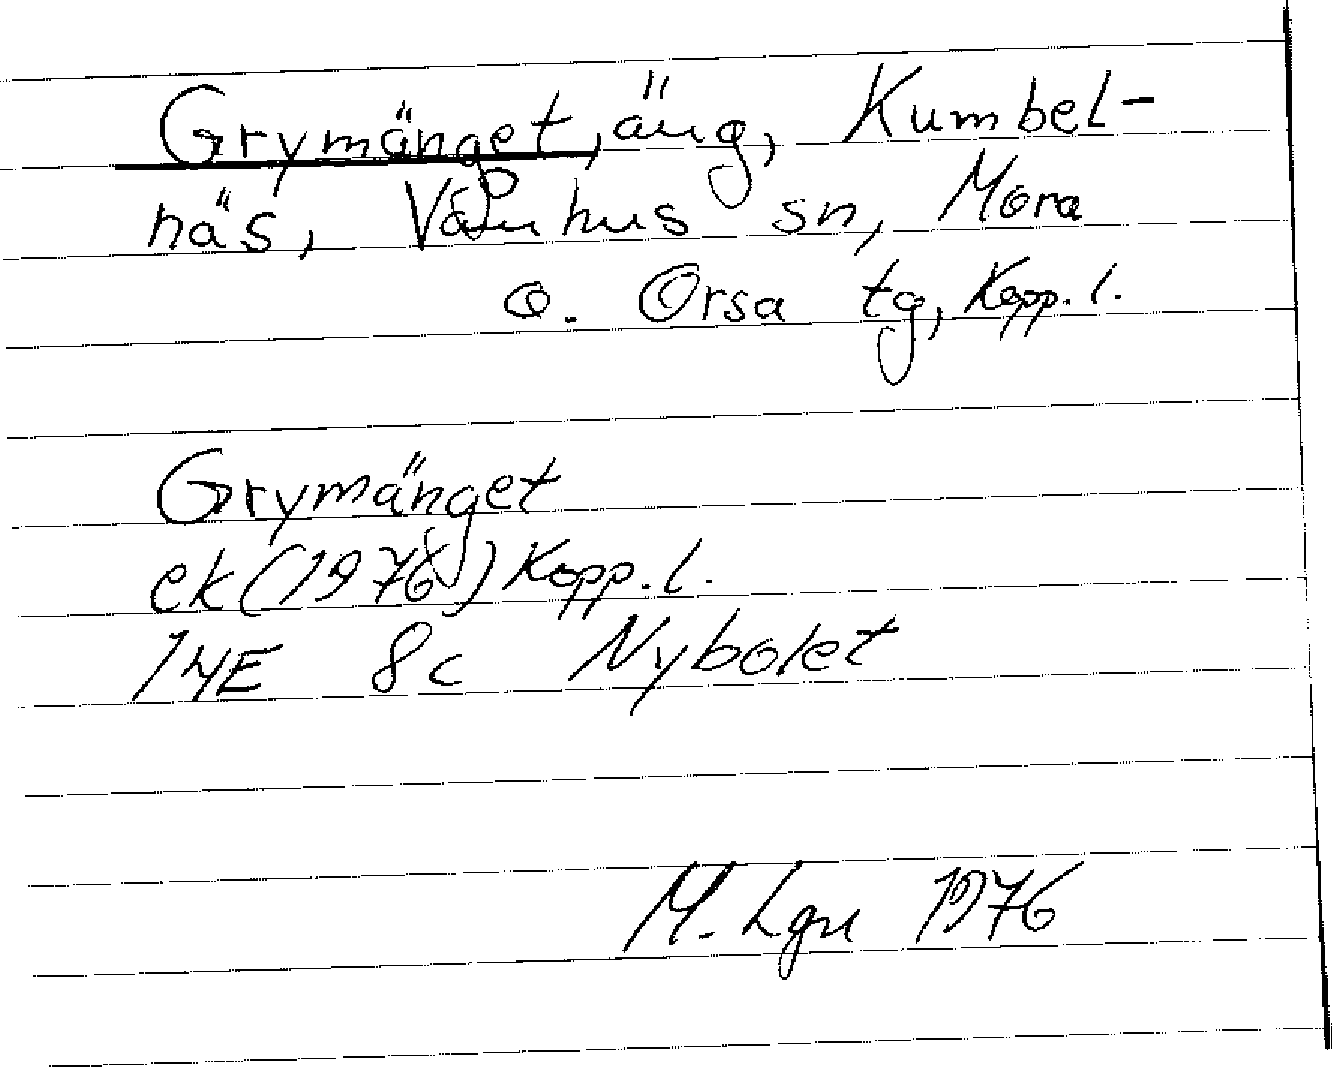 Grymänget, äng, Kumbel-
näs, Våmhus sn, Mora
o. Orsa tg, Kopp. l.
Grymänget
ek (1976) Kopp. l.
14E 8c Nybolet
M. Lgn 1976